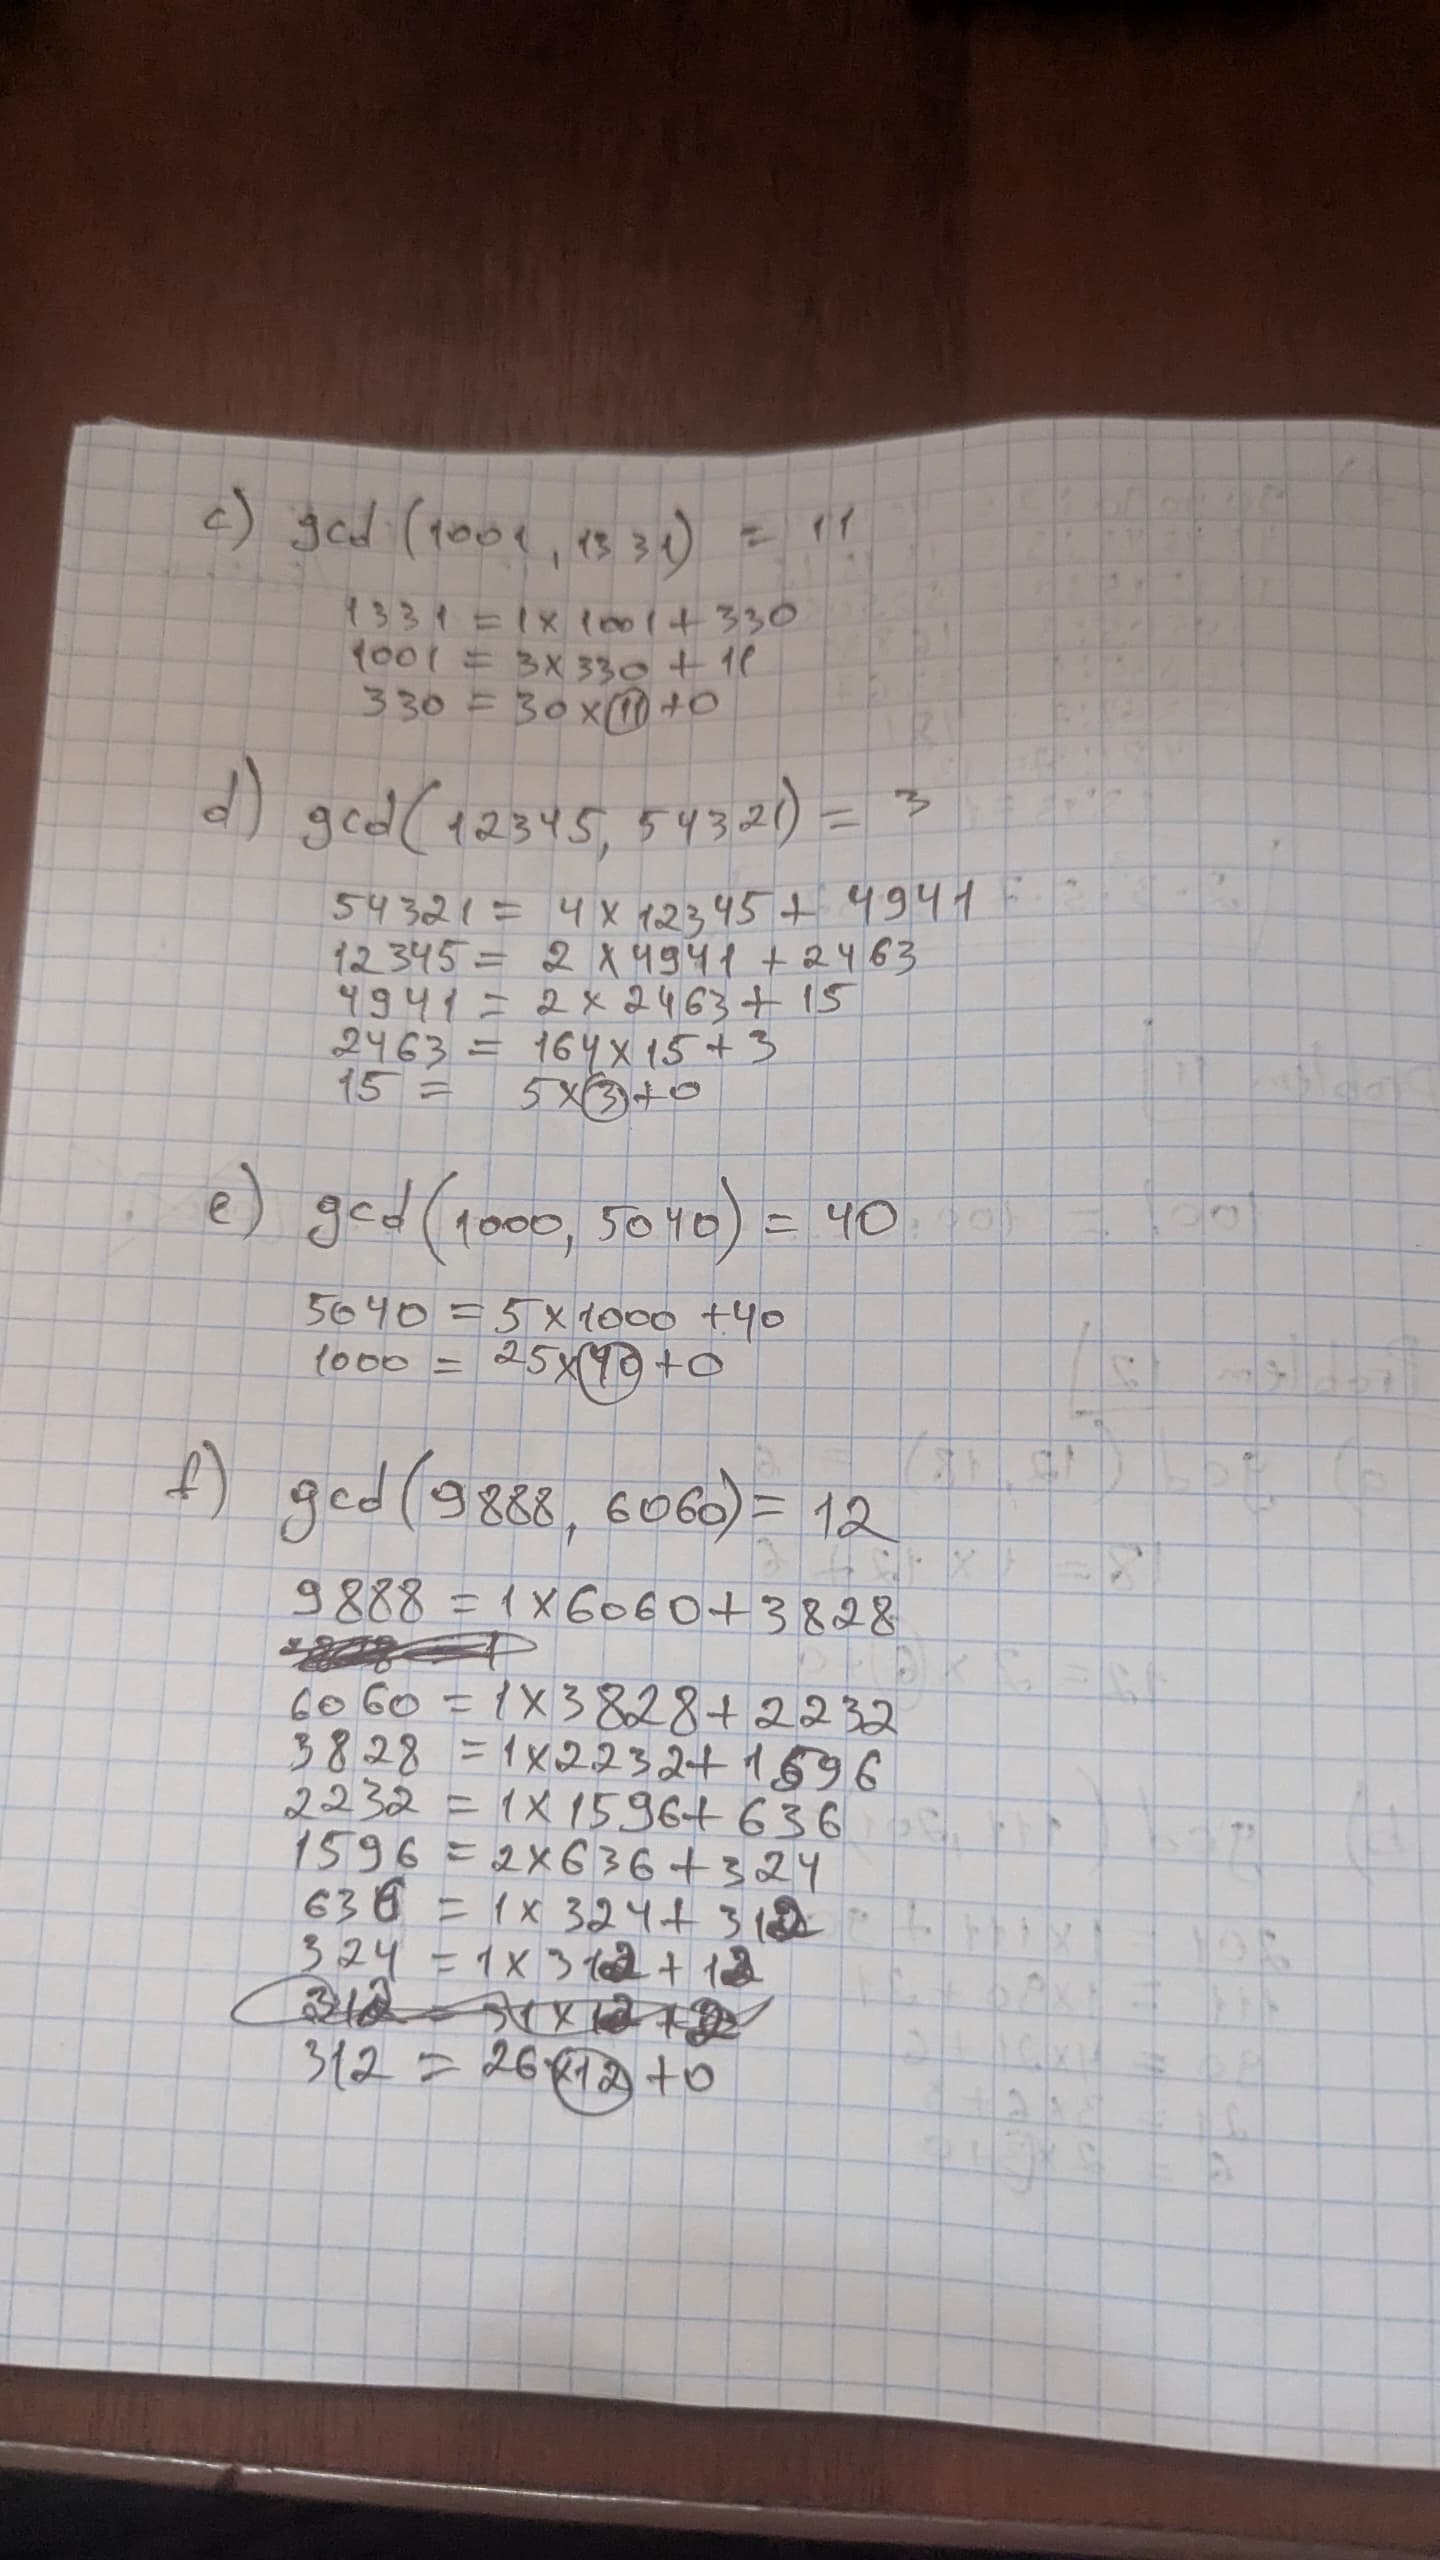 c) gcd(1001, 1331) = 11
1331 = 1 x 1001 + 330
1001 = 3 x 330 + 11
330 = 30 x 11 + 0
d) gcd(12345, 54321) = 3
54321 = 4 x 12345 + 4941
12345 = 2 x 4941 + 2463
4941 = 2 x 2463 + 15
2463 = 164 x 15 + 3
15 = 5 x 3 + 0
e) gcd(1000, 5040) = 40
5040 = 5 x 1000 + 40
1000 = 25 x 40 + 0
f) gcd(9888, 6060) = 12
9888 = 1 x 6060 + 3828
6060 = 1 x 3828 + 2232
3828 = 1 x 2232 + 1596
2232 = 1 x 1596 + 636
1596 = 2 x 636 + 324
636 = 1 x 324 + 312
324 = 1 x 312 + 12
312 = 26 x 12 + 0